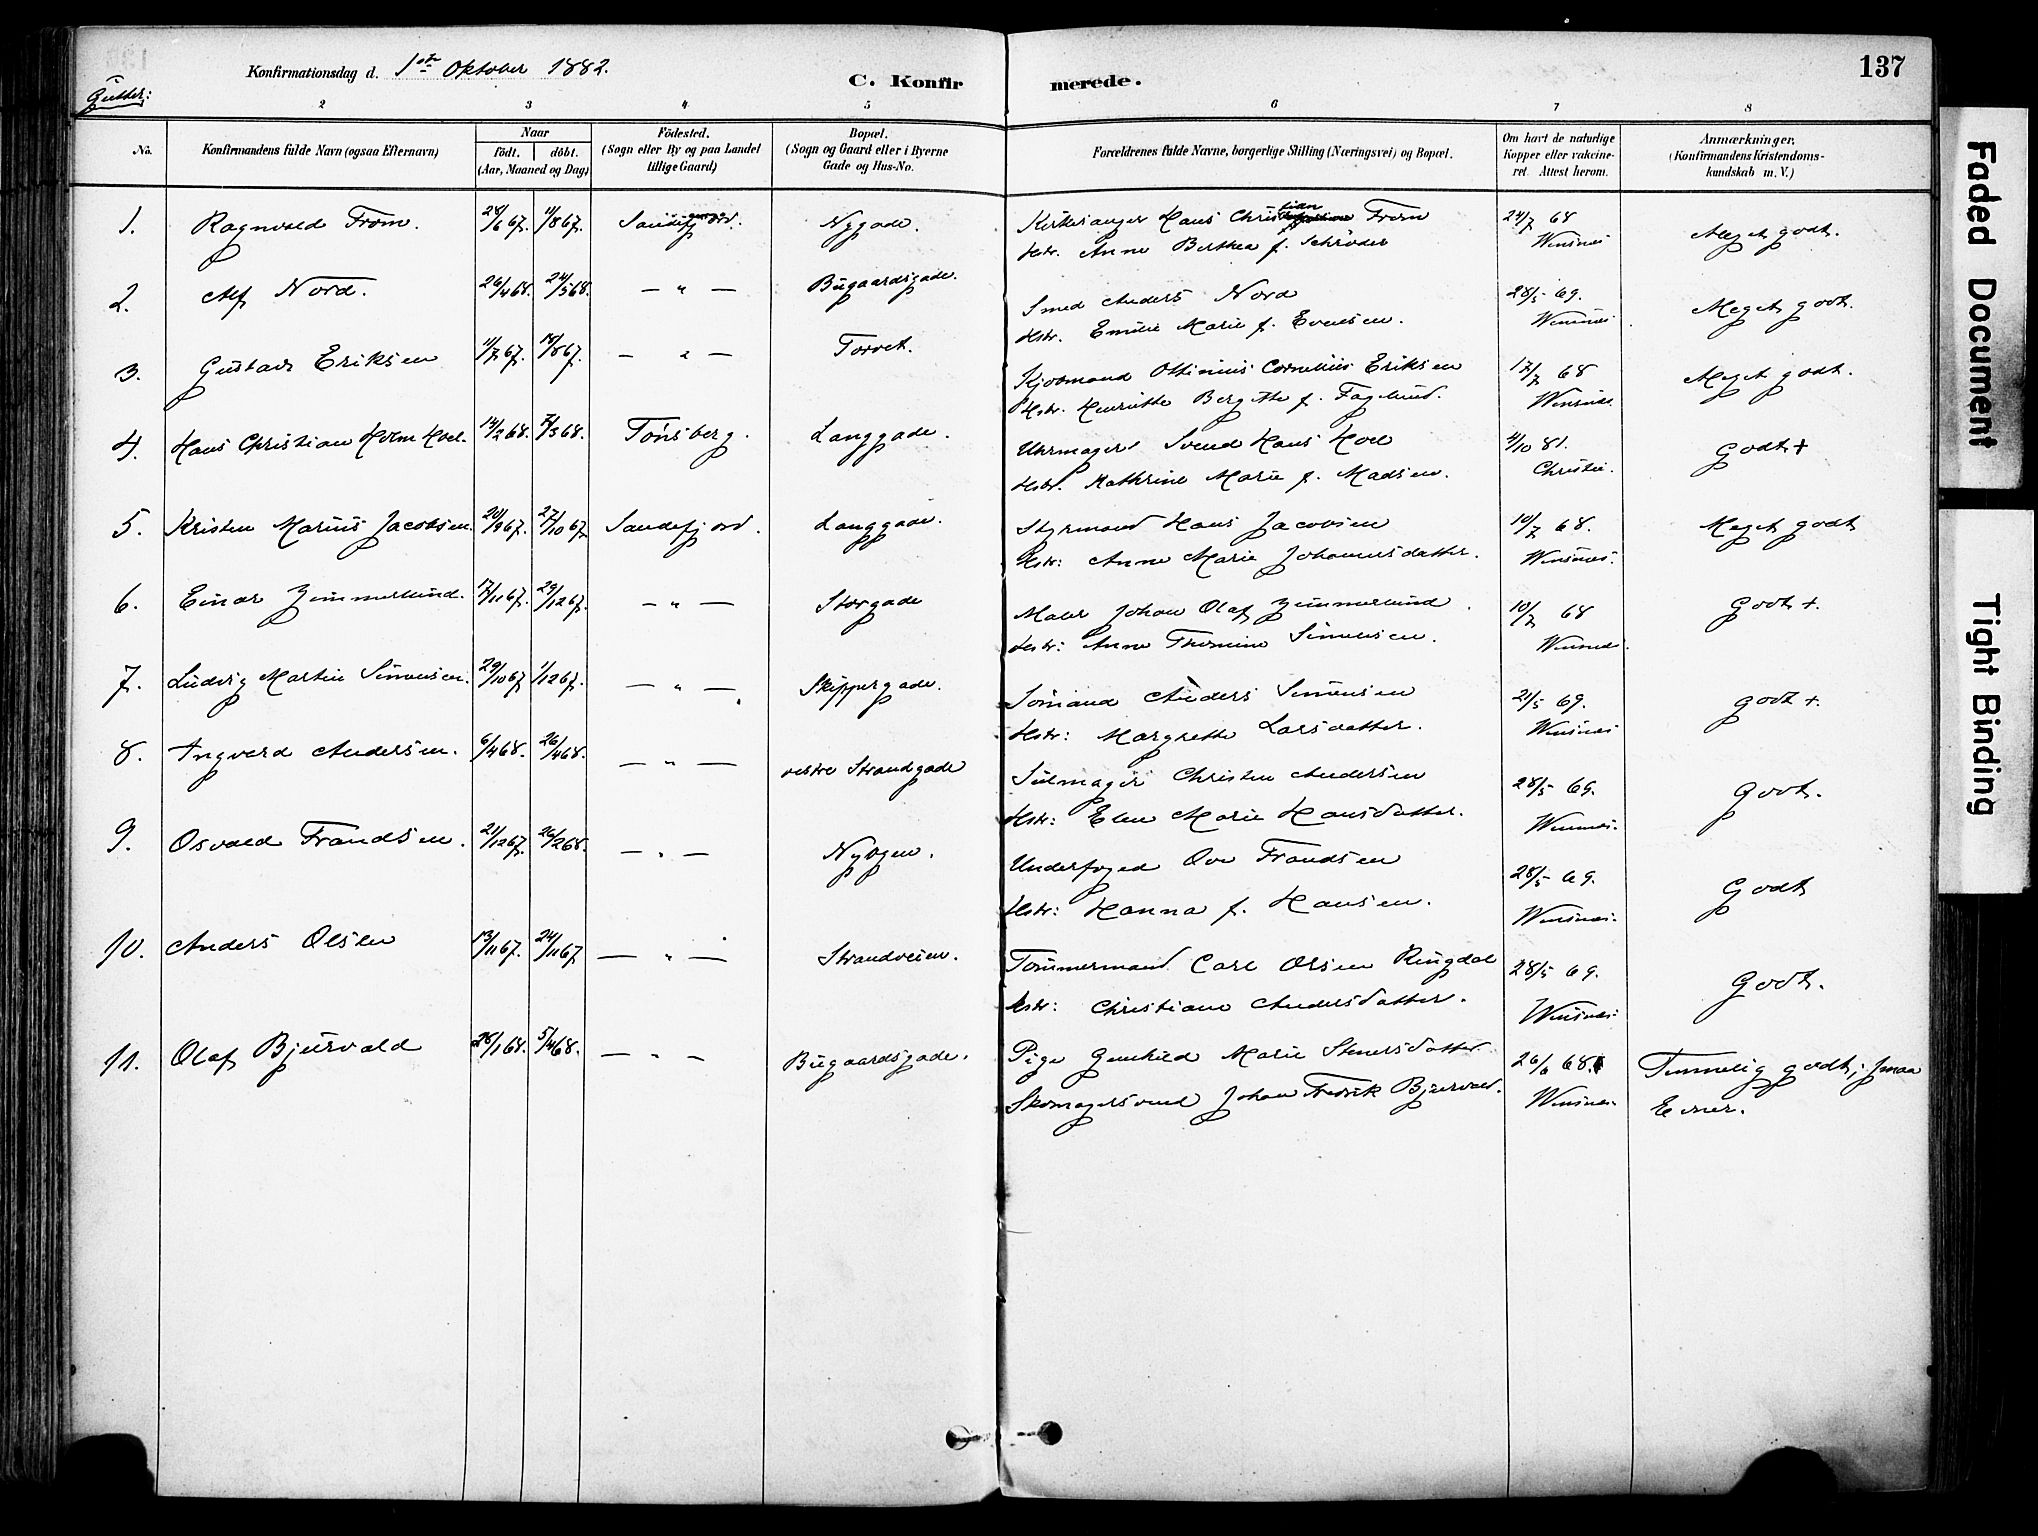 137
Konfirmationsdag d. 1ste Oktober 1882.
C. Konfirmerede.
Gutter:
2 3 4 5 6 7 8
No.
Konfirmandens fulde Navn (ogsaa Efternavn)
Naar
födt. döbt.
(Aar, Maaned og Dag)
Födested.
(Sogn eller By og paa Landet
tillige Gaard)
Bopæl.
(Sogn og Gaard eller i Byerne
Gade og Hus-No.
Forældrenes fulde Navne, borgerlige Stilling (Næringsvei) og Bopæl.
Om havt de naturlige
Kopper eller vakcine-
ret. Attest herom.
Anmærkninger.
(Konfirmandens Kristendoms-
kundskab m. V.)
1. Ragnvald From. 28/6 67. 11/8 67. Sandefjord. Nygade. Kirkesanger Hans Christian From 24/7 68 Meget godt.
Hstr. Anne Berthea f. Schrøder Wensnes
2. Alf Nord. 26/4 68. 24/5 68. — " — Bugaardsgade. Smed Anders Nord 28/5 69. Meget godt.
Hstr. Emilie Marie f. Evensen. Wensnes
3. Gustav Eriksen 11/7 67. 18/8 67. — " — Torvet. Kjøbmand Ottinius Cornelius Eriksen 17/7 68 Meget godt.
Hstr. Henriette Bergitte f. Faglund. Wensnes
4. Hans Christian Holm Hoel. 14/2 68. 7/3 68. Tønsberg. Langgade. Uhrmager Svend Hans Hoel 4/10 81. Godt +
Hstr. Kathrine Marie f. Madsen. Christie.
5. Kristen Marius Jacobsen. 20/9 67. 27/10 67. Sandefjord. Langgade. Styrmand Hans Jacobsen 10/7 68. Meget godt
Hstr: Anne Marie Johannesdatter. Wensnes.
6. Einar Zimmerlund. 17/11 67. 29/12 67. — " — Storgade Maler Johan Olaf Zimmerlund. 10/7 68 Godt +.
Hstr: Anne Thomine Simensen. Wensnes.
7. Ludvig Martin Simensen. 29/10 67. 1/12 67. — " — Skippergade. Sømand Anders Simensen 21/5 69. godt +.
Hstr: Margrethe Larsdatter. Wensnes
8. Ingvard Andersen. 6/4 68. 26/4 68. — " — vestre Strandgade Seilmager Christen Andersen 28/5 69. Godt.
Hstr: Elen Marie Hansdatter. Wensnes.
9. Osvald Frandsen. 21/12 67. 26/2 68. — " — Nybyen. Underfoged Ove Frandsen 28/5 69. Godt
Hstr: Hanna f. Hansen. Wensnes.
10. Anders Olsen 13/11 67. 24/11 67 — " — Strandveien. Tømmermand Carl Olsen Ringdal 28/5 69. Godt.
Hstr: Christiane Andersdatter. Wensnes.
11. Olaf Bjurvald 28/1 68. 5/4 68. — " — Bugaardsgade. Pige Gunhild Marie Stenersdatter 26/6 68. Temmelig godt; smaa
Skomagersvend Johan Fredrik Bjurvald. Wensnes. Evner.
Faded Document
Tight Binding